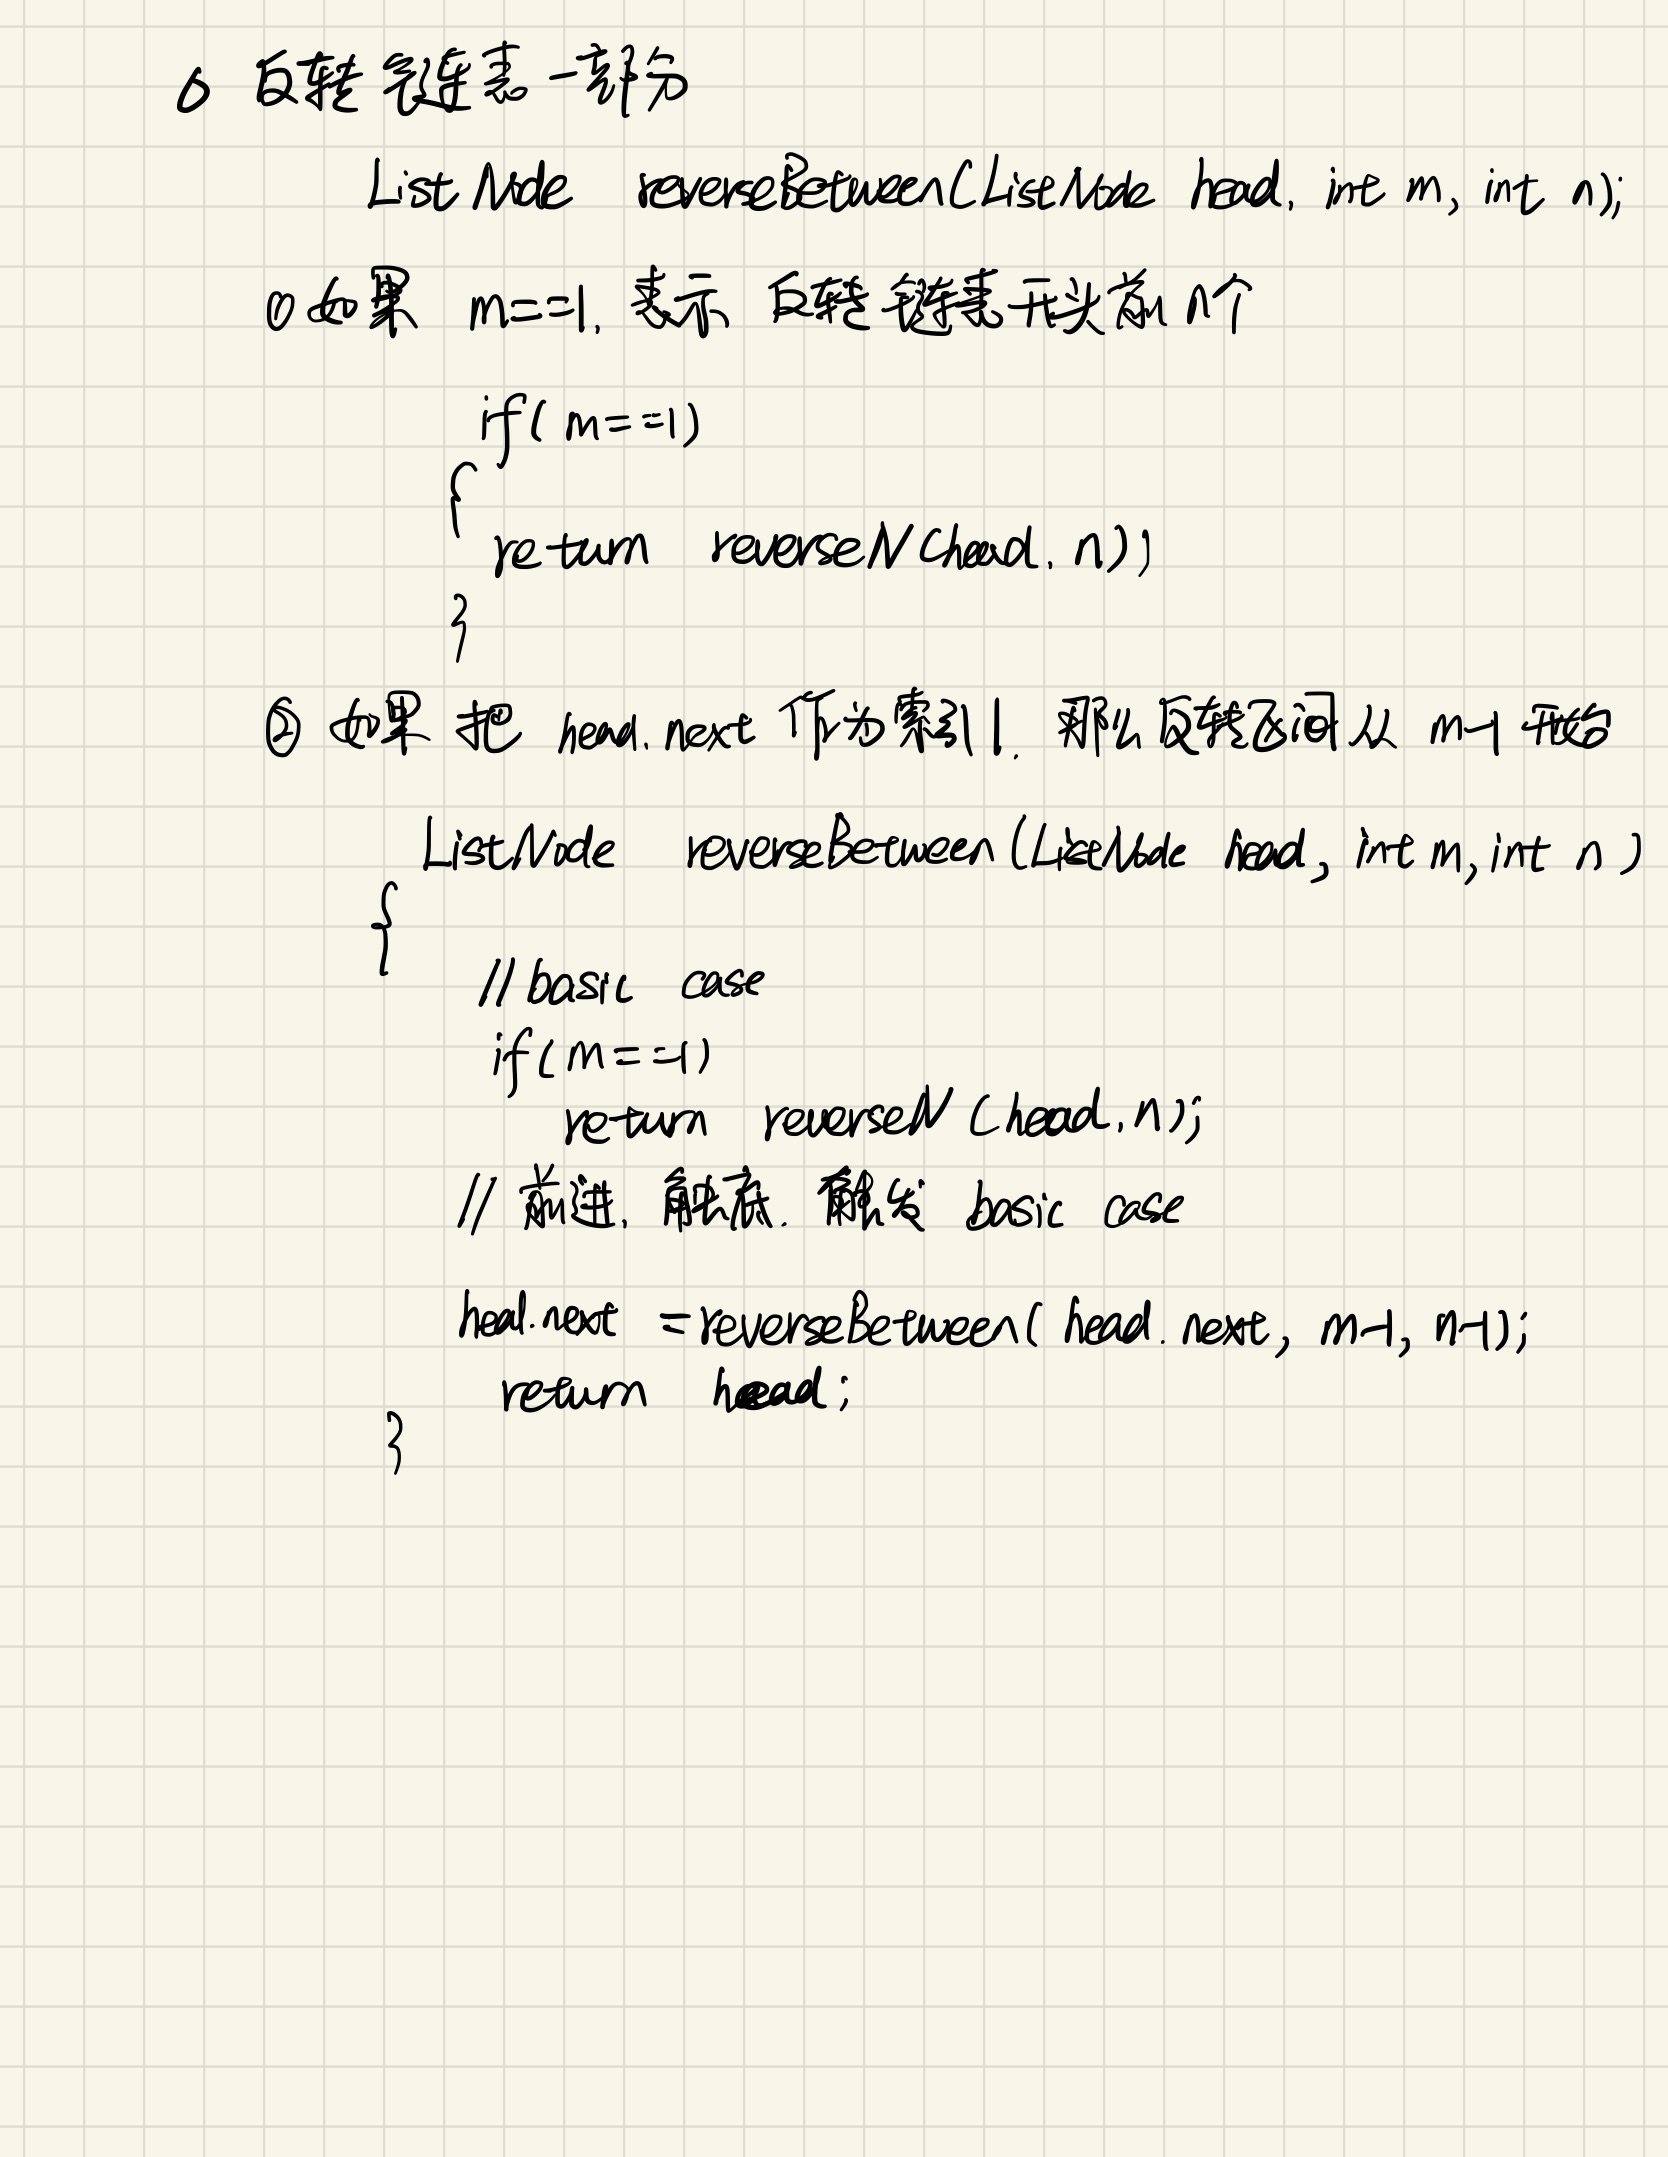 6 反转链表一部分
ListNode reverseBetween(ListNode head, int m, int n);
① 如果 m==1, 表示 反转链表开头前n个
if( m==1)
{
return reverseN(head, n);
}
② 如果 把 head.next 作为索引1, 那么反转区间从 m-1 开始
ListNode reverseBetween(ListNode head, int m, int n )
{
// basic case
if(m==1)
return reverseN (head, n);
// 前进, 触底, 触发 basic case
head.next =reverseBetween( head.next, m-1, n-1);
return head;
}